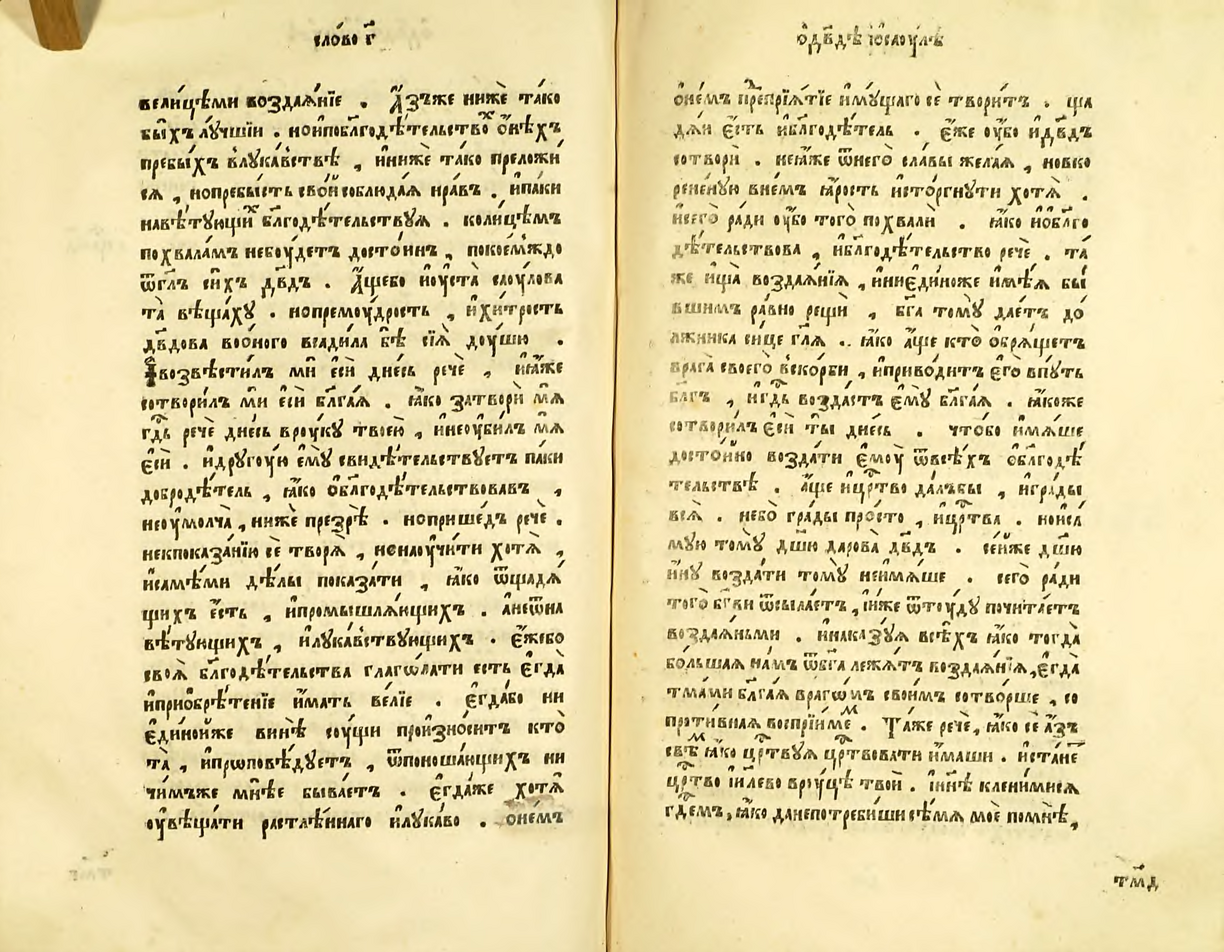 сло́во г҃
вели́цѣми воздаѧ́нїе . А҆́зъже нижѐ та́ко
бы́хъ лꙋ́чшїи . нои҆поблгⷣодѣ́тельствоⷯ ѻ҆нѣ́хъ
пребы́хъ влꙋка́вствѣ , и҆нижѐ та́ко преложи́
сѧ , нопребы́сть сво́й соблюда́ѧ нра́въ . и҆па́ки
навѣ́тꙋющиⷯ блгⷣодѣ́тельствꙋѧ . коли́цѣмъ
похвала́мъ небоу́детъ досто́инъ , покое́мꙋждо
ѿгл҃ъ си́хъ дв҃дъ . А҆́щебо и҆оу҆ста̀ саоу́лова
та̀ вѣща́хꙋ . нопремоу́дрость , и҆хи́трость
дв҃дова воо́ного всади́ла бѣ̀ сїѧ̀ доу́шю .
Ꙗ҆возвѣсти́лъ ми є҆сѝ дне́сь речѐ , и҆ꙗ҆́же
сотвори́лъ ми є҆сѝ блг҃а́ѧ . ꙗ҆́ко затворѝ мѧ̀
гдⷭ҇ь речѐ дне́сь вроу́кꙋ твоею̀ , и҆неоу҆би́лъ мѧ̀
є҆сѝ . и҆дрꙋгоу́ю є҆мꙋ̀ свидѣ́тельствꙋетъ па́ки
добродѣ́тель , ꙗ҆́ко ѻ҆блгⷣодѣ́тельствовавъ ,
неоу҆молча̀ , нижѐ презрѣ̀ . ноприше́дъ речѐ .
некпоказа́нїю сѐ творѧ̀ , ноинаоучи́ти хотѧ̀ ,
и҆самѣ́ми дѣ́лы показа́ти , ꙗ҆́ко ѿщадѧ́
щихъ є҆́сть , и҆промышлѧ́ющихъ . а҆неѿна
вѣ́тꙋющихъ , и҆лꙋка́вствꙋющихъ . є҆́жебо
своѧ̀ блгⷣодѣ́тельства глаго́лати есть є҆гда̀
и҆приѡбрѣ́тенїе и҆́мать ве́лїе . є҆гда́бо ни
є҆ди́нойже винѣ̀ соу́щи произно́ситъ кто̀
та̀ , и҆проповѣ́дꙋетъ , ѿпоноша́ющихъ ни
чи́мъже мнѣ́е быва́етъ . є҆гда́же хотѧ̀
оу҆вѣща́ти растлѣ́ннаго и҆лꙋка́во . ѻ҆не́мъ
ѻ҆дв҃дѣ и҆саоу́лѣ
ѻ҆не́мъ препрїѧ́тїе и҆мꙋ́щаго сѐ твори́тъ . ща
дѧ́и є҆́сть и҆блгⷣодѣ́тель . є҆́же оу҆́бо и҆дв҃дъ
сотворѝ . неꙗ҆́же ѿнего̀ сла́вы жела́ѧ , новко
рене́нꙋю вне́мъ ꙗ҆́рость исто́ргнꙋти хотѧ̀ .
и҆сего̀ ради оу҆́бо того̀ похвалѝ . ꙗ҆́ко и҆ѻ҆блгⷣо
дѣ́тельствова , и҆блгⷣодѣ́тельство рече . та́
же и҆ща̀ воздаѧ́нїѧ , и҆ниєди́ноже и҆мѣ́ѧ бы́
вшимъ ра́вно рещѝ , бг҃а томꙋ̀ дае́тъ до́
лжника си́це гл҃ѧ . ꙗ҆́ко а҆́ще кто̀ ѻ҆брѧ́щетъ
врага̀ своего̀ вско́рби , и҆приво́дитъ є҆го̀ впꙋ́ть
бл҃гъ , и҆гдⷭ҇ь возда́стъ є҆мꙋ̀ блг҃а́ѧ . ꙗ҆́коже
сотвори́лъ є҆сѝ ты̀ дне́сь . что́бо и҆мѧ́ше
досто́йно возда́ти є҆моу̀ ѿвсѣ́хъ ѻ҆блгⷣодѣ́
тельствѣ . а҆́ще и҆црⷭ҇тво да́лъбы , и҆гра́ды
всѧ̀ . не́бо гра́ды про́сто , и҆црⷭ҇тва . нои҆са́
мꙋю томꙋ̀ дш҃ю дарова̀ дв҃дъ . сеи́же дш҃ю
и҆нꙋ̀ возда́ти томꙋ̀ неи҆мѧ́ше . сего̀ ради
того̀ бг҃ви ѿсыла́етъ , и҆́же ѿтоу́дꙋ почита́етъ
воздаѧ́ньми . и҆наказꙋ́ѧ всѣ́хъ ꙗ҆́ко тогда̀
бо́льшаѧ на́мъ ѿбг҃а лежа́тъ воздаѧ́нїѧ , є҆гда̀
тма́ми блг҃а́ѧ врагѡ́мъ свои́мъ сотво́рше , со
проти́внаѧ воспрїи́меⷨ . Та́же речѐ , ꙗ҆́ко сѐ а҆́зъ
свѣⷨ ꙗ҆́ко црⷭ҇твꙋѧ црⷭ҇твовати и҆́маши . и҆ста́неⷮ
црⷭ҇тво і҆и҃лево вроу́цѣ твое́й . і҆ны́нѣ клени́мисѧ
гдⷭ҇емъ , ꙗ҆́ко данепотреби́ши сѣ́мѧ моѐ помнѣ̀ ,
тм҃д